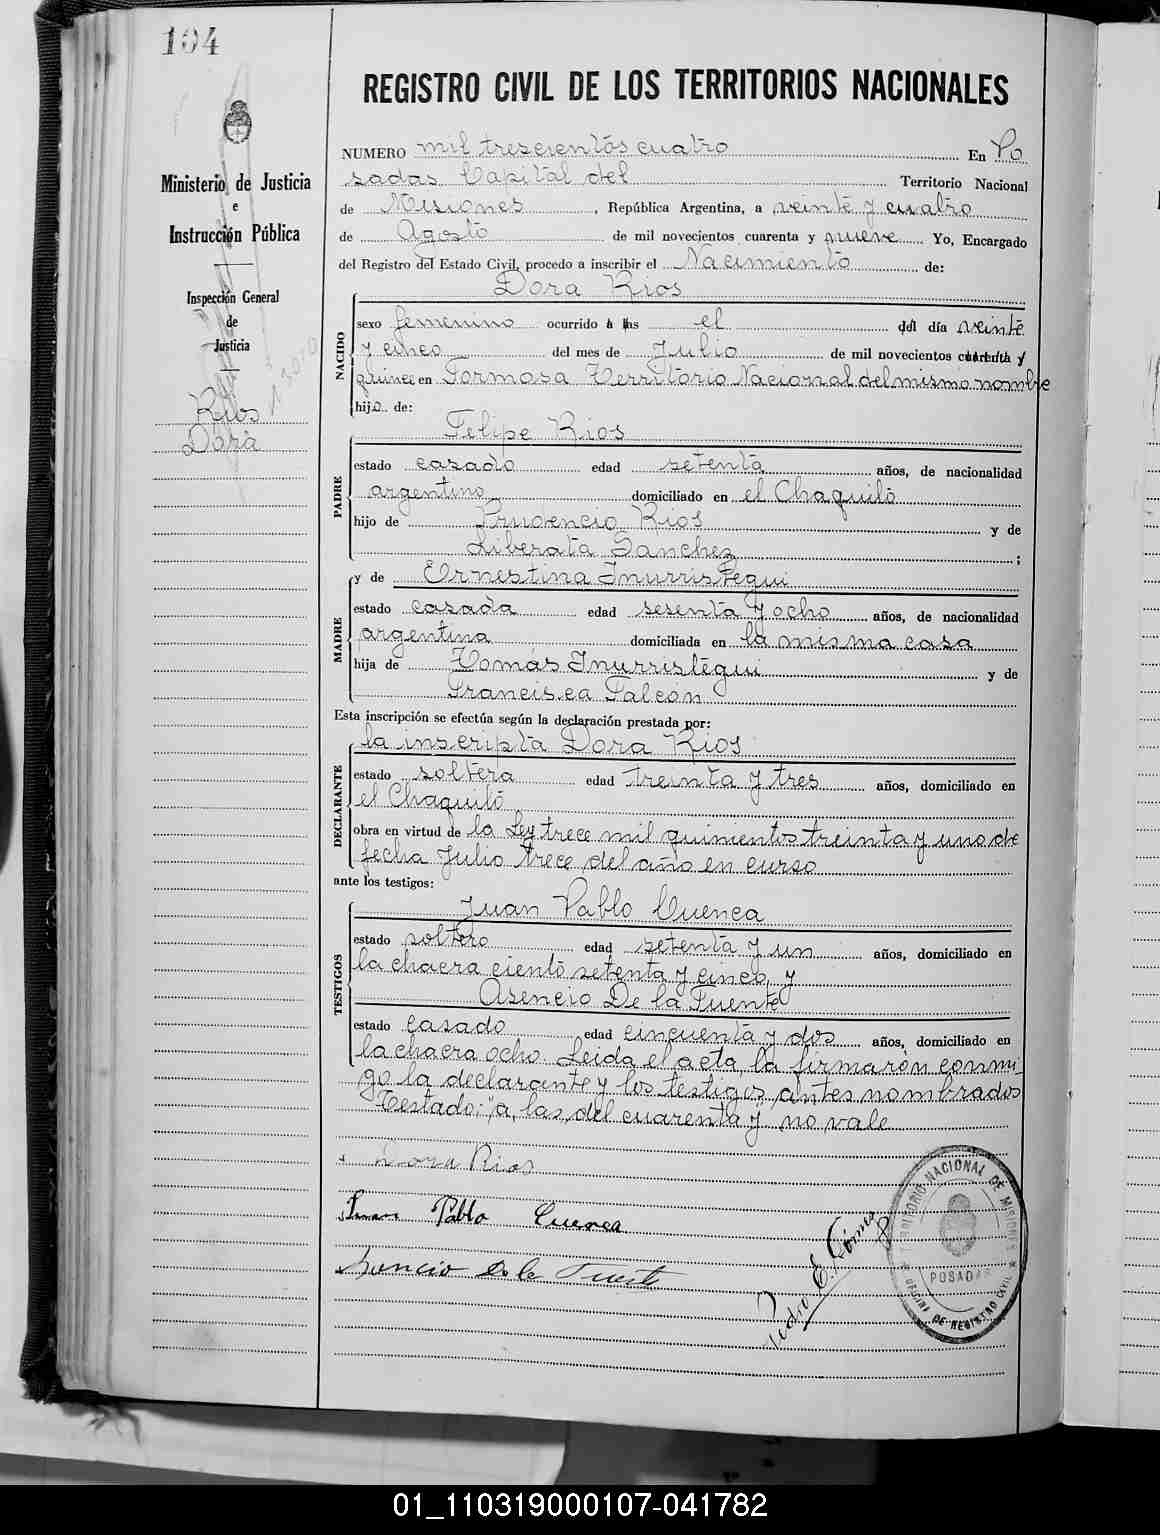 104
Ministerio de Justicia
e
Instrucción Pública
Inspección General
de
Justicia
Rios
Dora
REGISTRO CIVIL DE LOS TERRITORIOS NACIONALES
NUMERO mil trescientos cuatro En Po
sadas Capital del Territorio Nacional
de Misiones, República Argentina, a veinte y cuatro
de Agosto de mil novecientos cuarenta y nueve Yo, Encargado
del Registro del Estado Civil, procedo a inscribir el Nacimiento de:
Dora Rios
NACIDO
sexo femenino ocurrido a las el del día veinte
y cinco del mes de Julio de mil novecientos cuarenta y
quince en Formosa Territorio Nacional del mismo nombre
hija de:
Felipe Rios
PADRE
estado casado edad setenta años, de nacionalidad
argentino domiciliado en el Chaquito
hijo de Prudencio Rios y de
Liberata Sanchez;
y de Ernestina Inurristegui
MADRE
estado casada edad sesenta y ocho años, de nacionalidad
argentina domiciliada en la misma casa
hija de Tomás Inurristegui y de
Francisca Falcón
Esta inscripción se efectúa según la declaración prestada por:
la inscripta Dora Rios
DECLARANTE
estado soltera edad treinta y tres años, domiciliado en
el Chaquito
obra en virtud de la Ley trece mil quinientos treinta y uno de
fecha Julio trece del año en curso
ante los testigos:
Juan Pablo Cuenca
TESTIGOS
estado soltero edad setenta y un años, domiciliado en
la chacra ciento setenta y cinco y
Asencio De la Fuente
estado casado edad cincuenta y dos años, domiciliado en
la chacra ocho. Leida el acta la firmarón conmi-
go la declarante y los testigos antes nombrados
Testado: "a, las, del cuarenta y" no vale
Dora Rios
Juan Pablo Cuenca
Asencio De la Fuente
Pedro E. Gómez
TERRITORIO NACIONAL DE MISIONES
POSADAS
OFICINA DE REGISTRO CIVIL
01_110319000107-041782